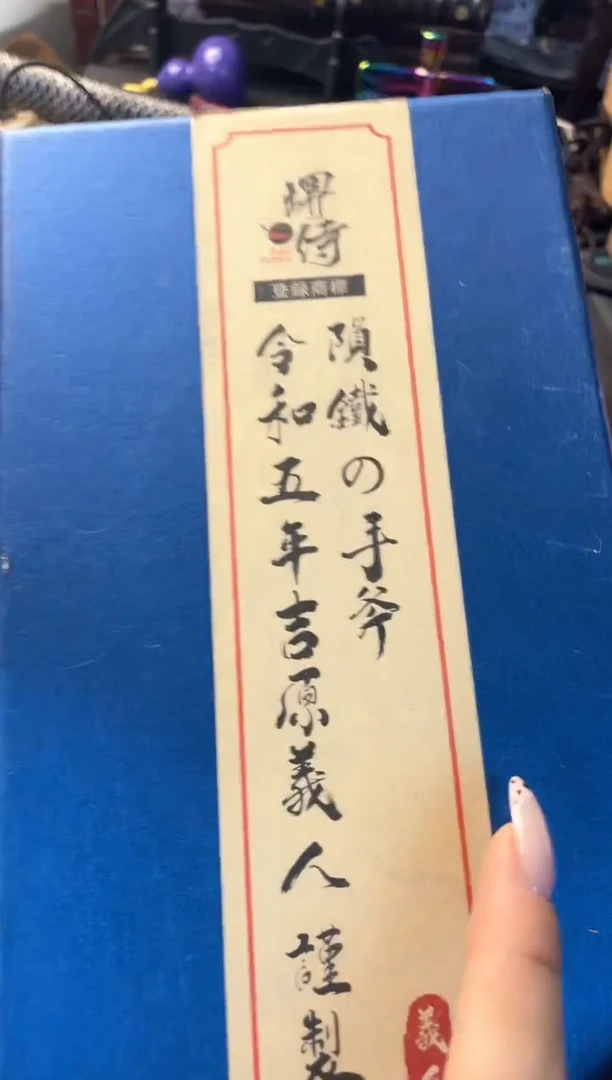 堺侍
登録商標
隕鐵の手斧
令和五年吉原義人 謹製
義人